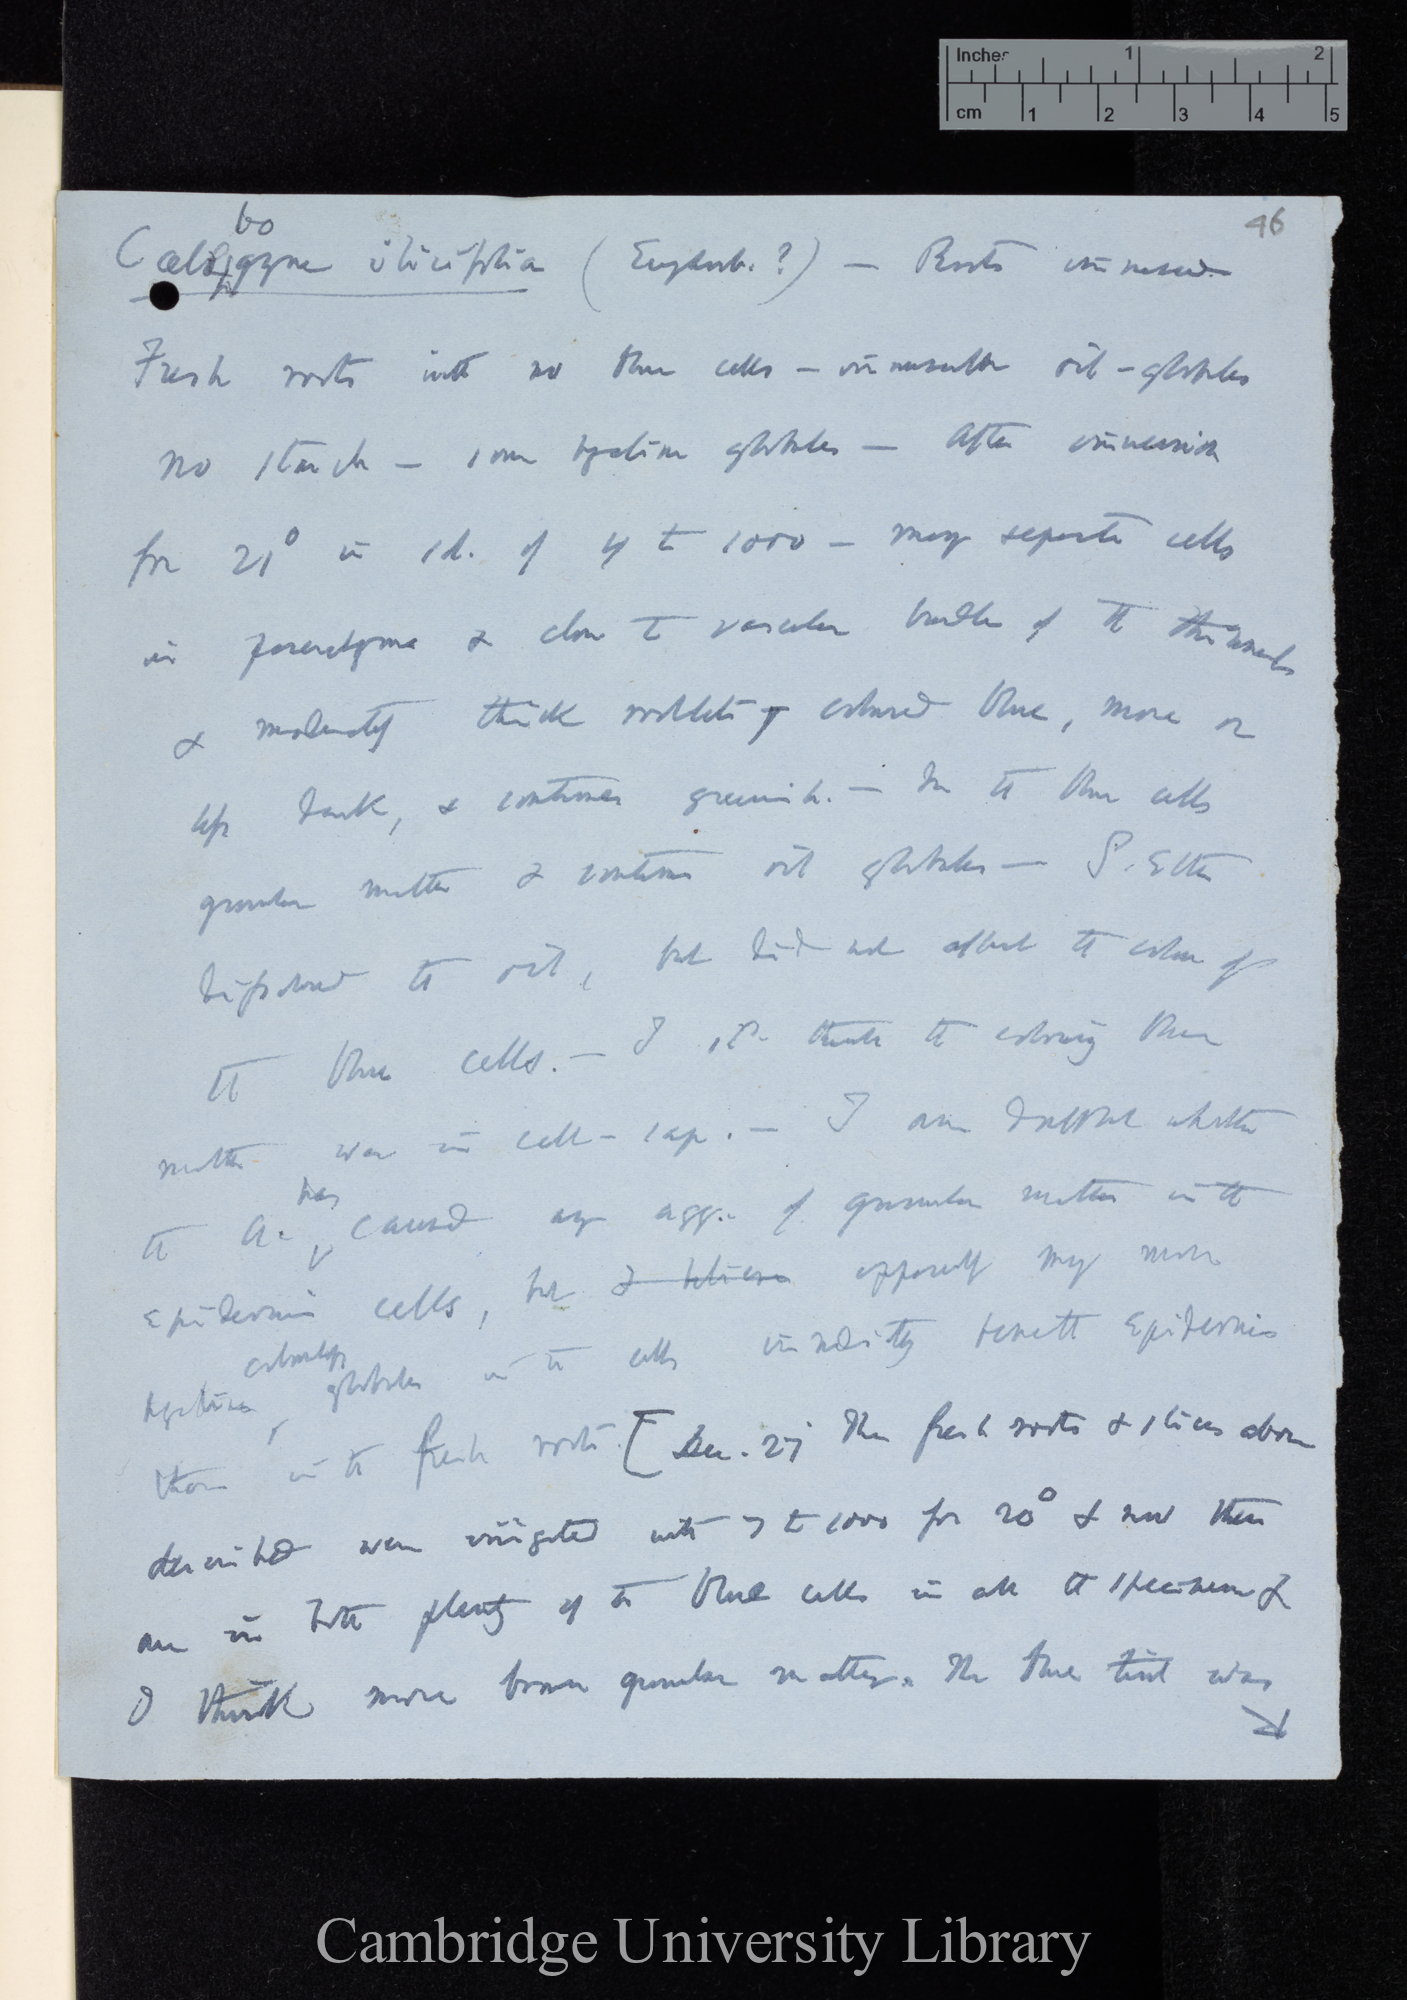 Inches 1 2
cm 1 2 3 4 5
46
bo
Cælogyne ilicifolia (Euphorb. ?) — Roots immersed
Fresh roots with no blue cells — innumerable oil-globules
no starch — some hyaline globules — After immersion
for 21° in sol. of 4 to 1000 — many separate cells
in parenchyma & close to vascular bundle of the thinnest
& moderately thick rootlets coloured blue, more or
less dark, & sometimes greenish. — In the blue cells
granular matter & sometimes oil globules — S. Ether
dissolved the oil, but did not affect the colour of
the blue cells. — I shd. think the colouring blue
matter was in cell-sap. — I am doubtful whether
the A. has caused any agg. of granular matter in the
epidermis cells, but I believe apparently many more
hyaline colourless globules in the cells immediately beneath Epidermis
than in the fresh roots. [Dec. 27 The fresh roots & slices above
described were irrigated with 7 to 1000 for 20° & now there
are in both plenty of the blue cells in all the specimens &
I think more brown granular matter. The blue tint was
Cambridge University Library